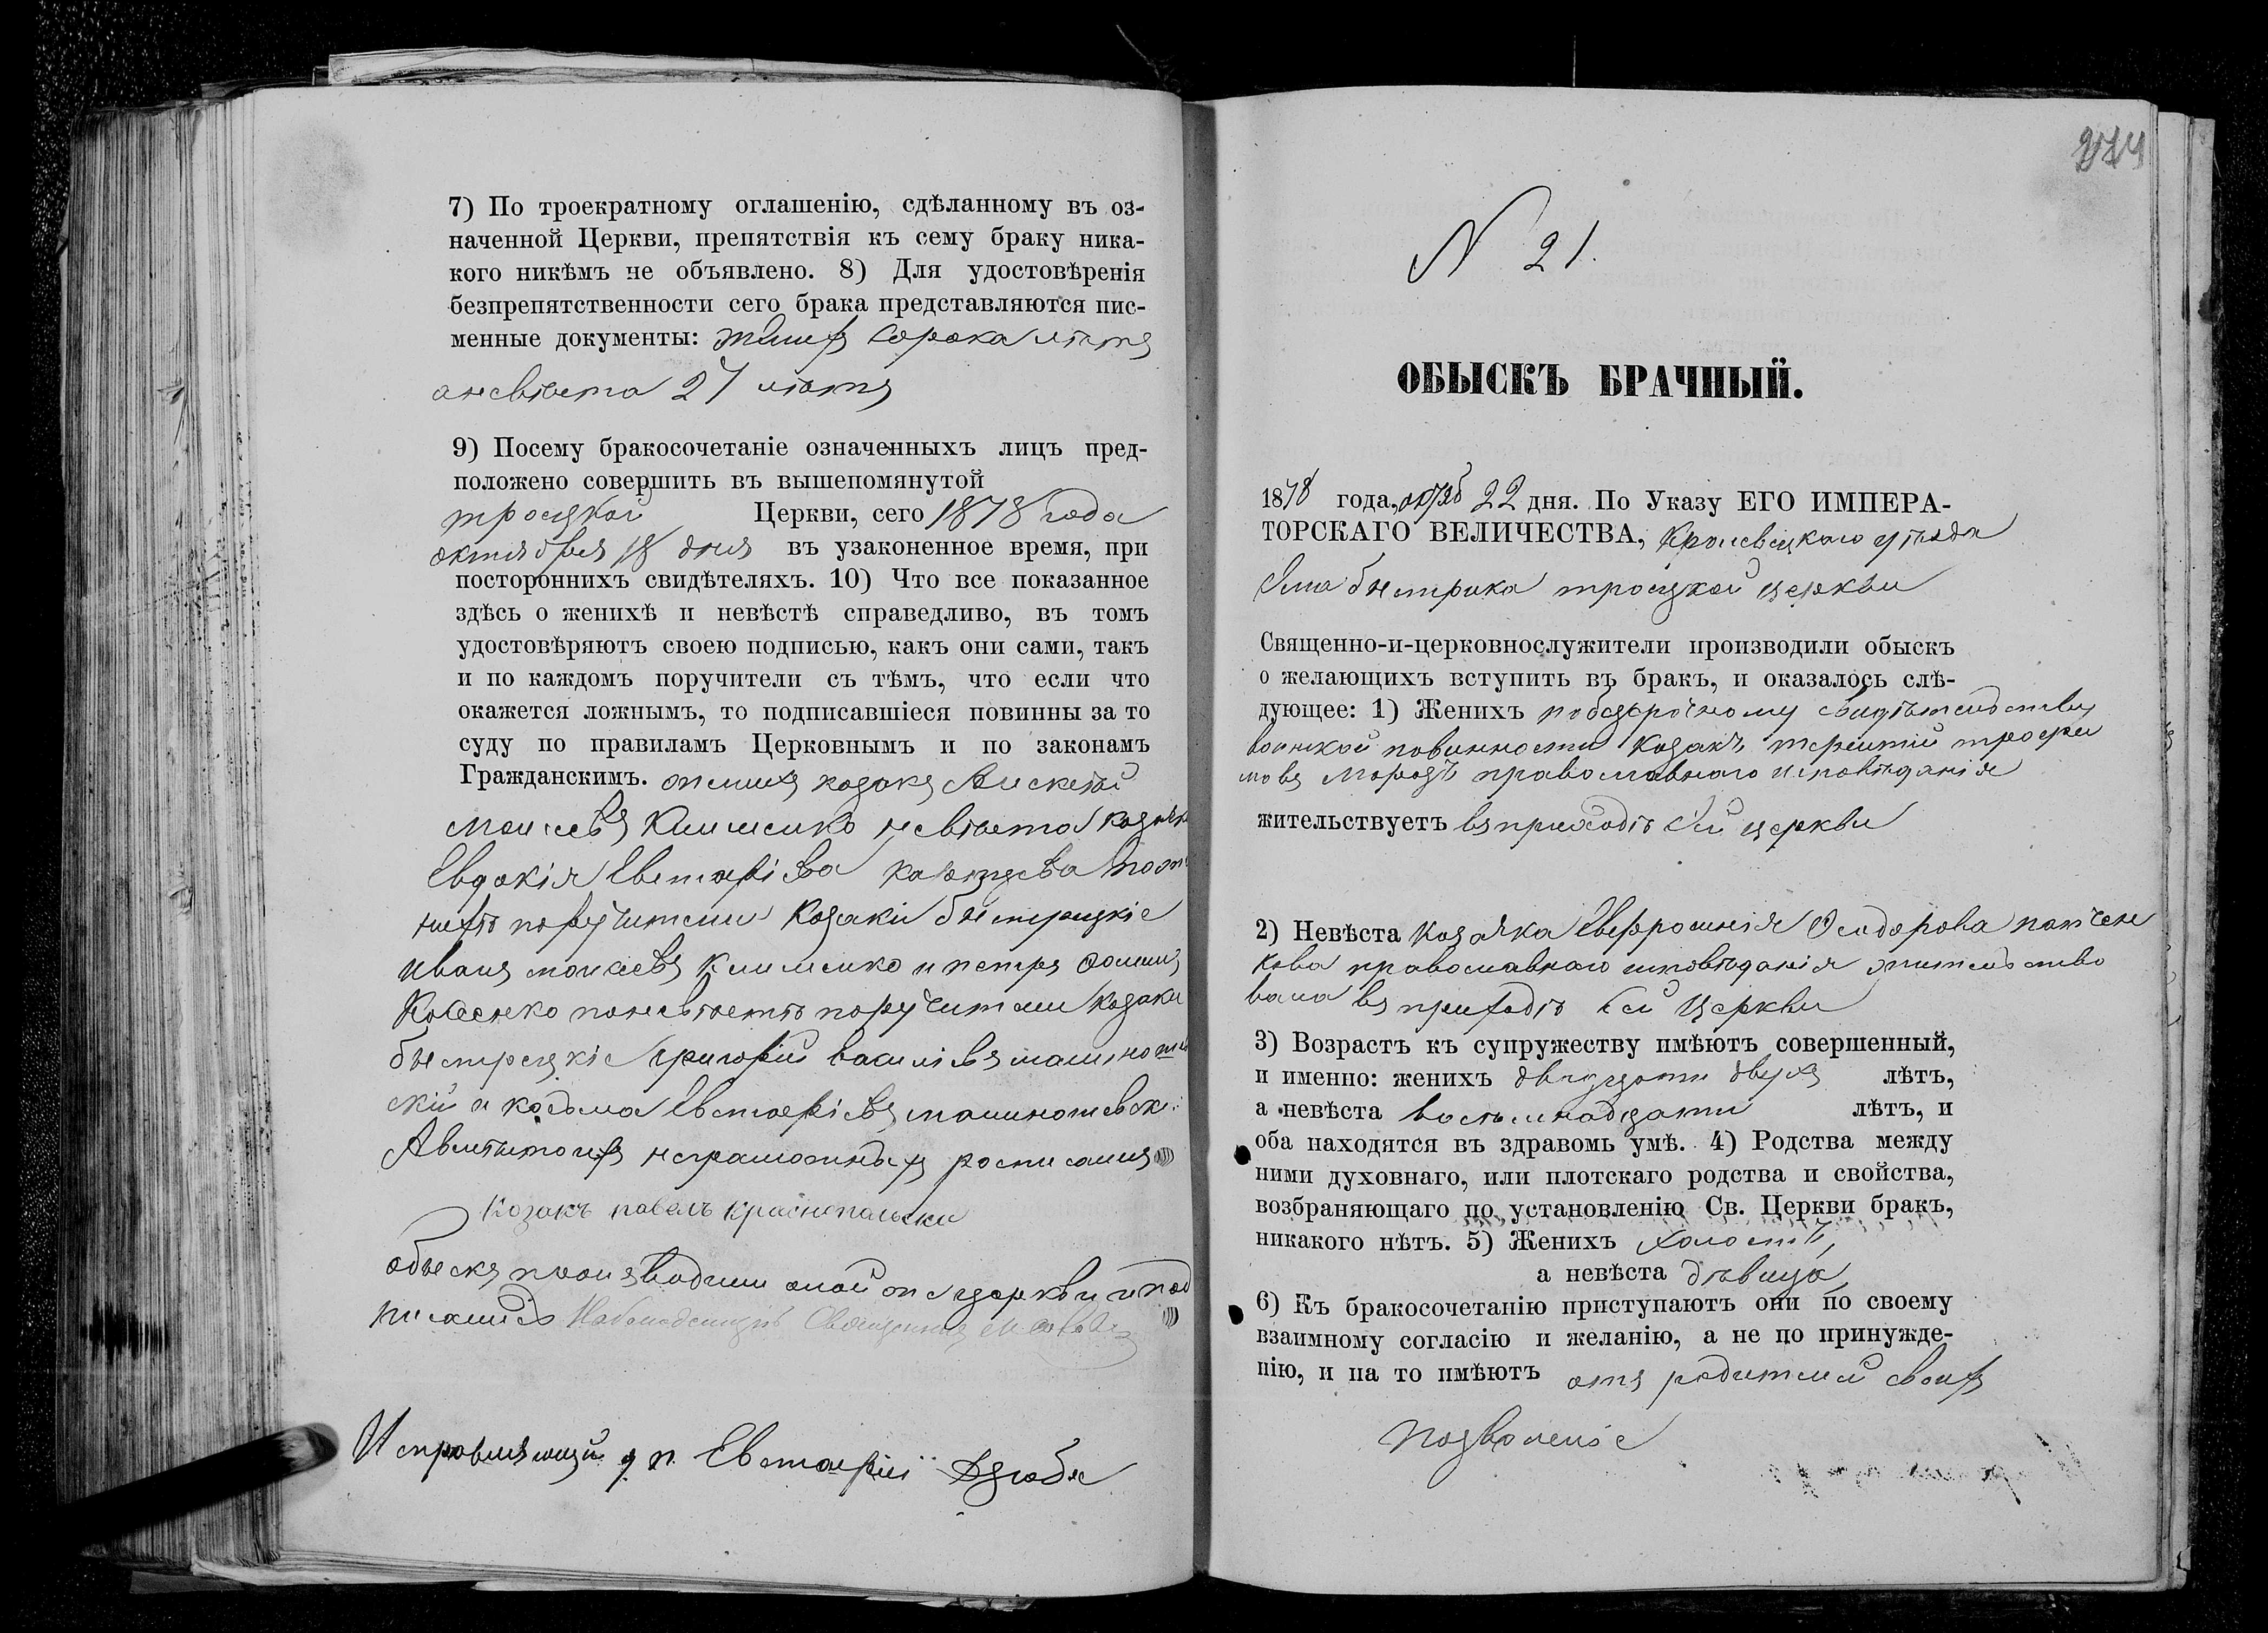 7) По троекратному оглашенію, сдѣланному въ оз-
наченной Церкви, препятствія къ сему браку ника-
кого никѣмъ не объявлено. 8) Для удостовѣренія
безпрепятственности сего брака представляются пис-
менные документы: сорока лѣтъ
а невѣста 27 лѣтъ
9) Посему бракосочетаніе означенныхъ лицъ пред-
положено совершить въ вышепомянутой
троицкой Церкви, сего 1878 года
октября 18 дня въ узаконенное время, при
постороннихъ свидѣтеляхъ. 10) Что все показанное
здѣсь о женихѣ и невѣстѣ справедливо, въ томъ
удостовѣряютъ своею подписью, какъ они сами, такъ
и по каждомъ поручители съ тѣмъ, что если что
окажется ложнымъ, то подписавшіеся повинны за то
суду по правиламъ Церковнымъ и по законамъ
Гражданскимъ. козакъ
Моисеевъ Клименко невѣста
Евдокія Евстафіева
поручители козаки быстрицкіе
Иванъ Моисеевъ Клименко и петръ
по невѣстѣ поручители козаки
быстрецкіе григорій василіевъ
скій и козьма Евстафіевъ
А вмѣсто ихъ неграмотныхъ росписался
Козакъ павелъ краснопольски
обыскъ производили оной церкви и под
писались Священникъ
Исправляющій д. п. Евстафій Дзюба
N 21.
ОБЫСКЪ БРАЧНЫЙ.
1878 года, 22 дня. По Указу ЕГО ИМПЕРА-
ТОРСКАГО ВЕЛИЧЕСТВА, Кролевецкаго уѣзда
Села быстрика троицкой церкви
Священно-и-церковнослужители производили обыскъ
о желающихъ вступить въ бракъ, и оказалось слѣ-
дующее: 1) Женихъ свидѣтельству
воинской повинности козакъ терентій трофи
мовъ Морозъ православнаго исповѣданія
жительствуетъ въ приходѣ сей церкви
2) Невѣста козачка Евфросинія Ѳеодорова
кова православнаго исповѣданія жительство
вала въ приходѣ сей Церкви
3) Возрастъ къ супружеству имѣютъ совершенный,
и именно: женихъ двадцати двухъ лѣтъ,
а невѣста восьмнадцати лѣтъ, и
оба находятся въ здравомъ умѣ. 4) Родства между
ними духовнаго, или плотскаго родства и свойства,
возбраняющаго по установленію Св. Церкви бракъ,
никакого нѣтъ. 5) Женихъ холостъ,
а невѣста дѣвица
6) Къ бракосочетанію приступаютъ они по своему
взаимному согласію и желанію, а не по принужде-
нію, и на то имѣютъ отъ родителей своихъ
позволеніе